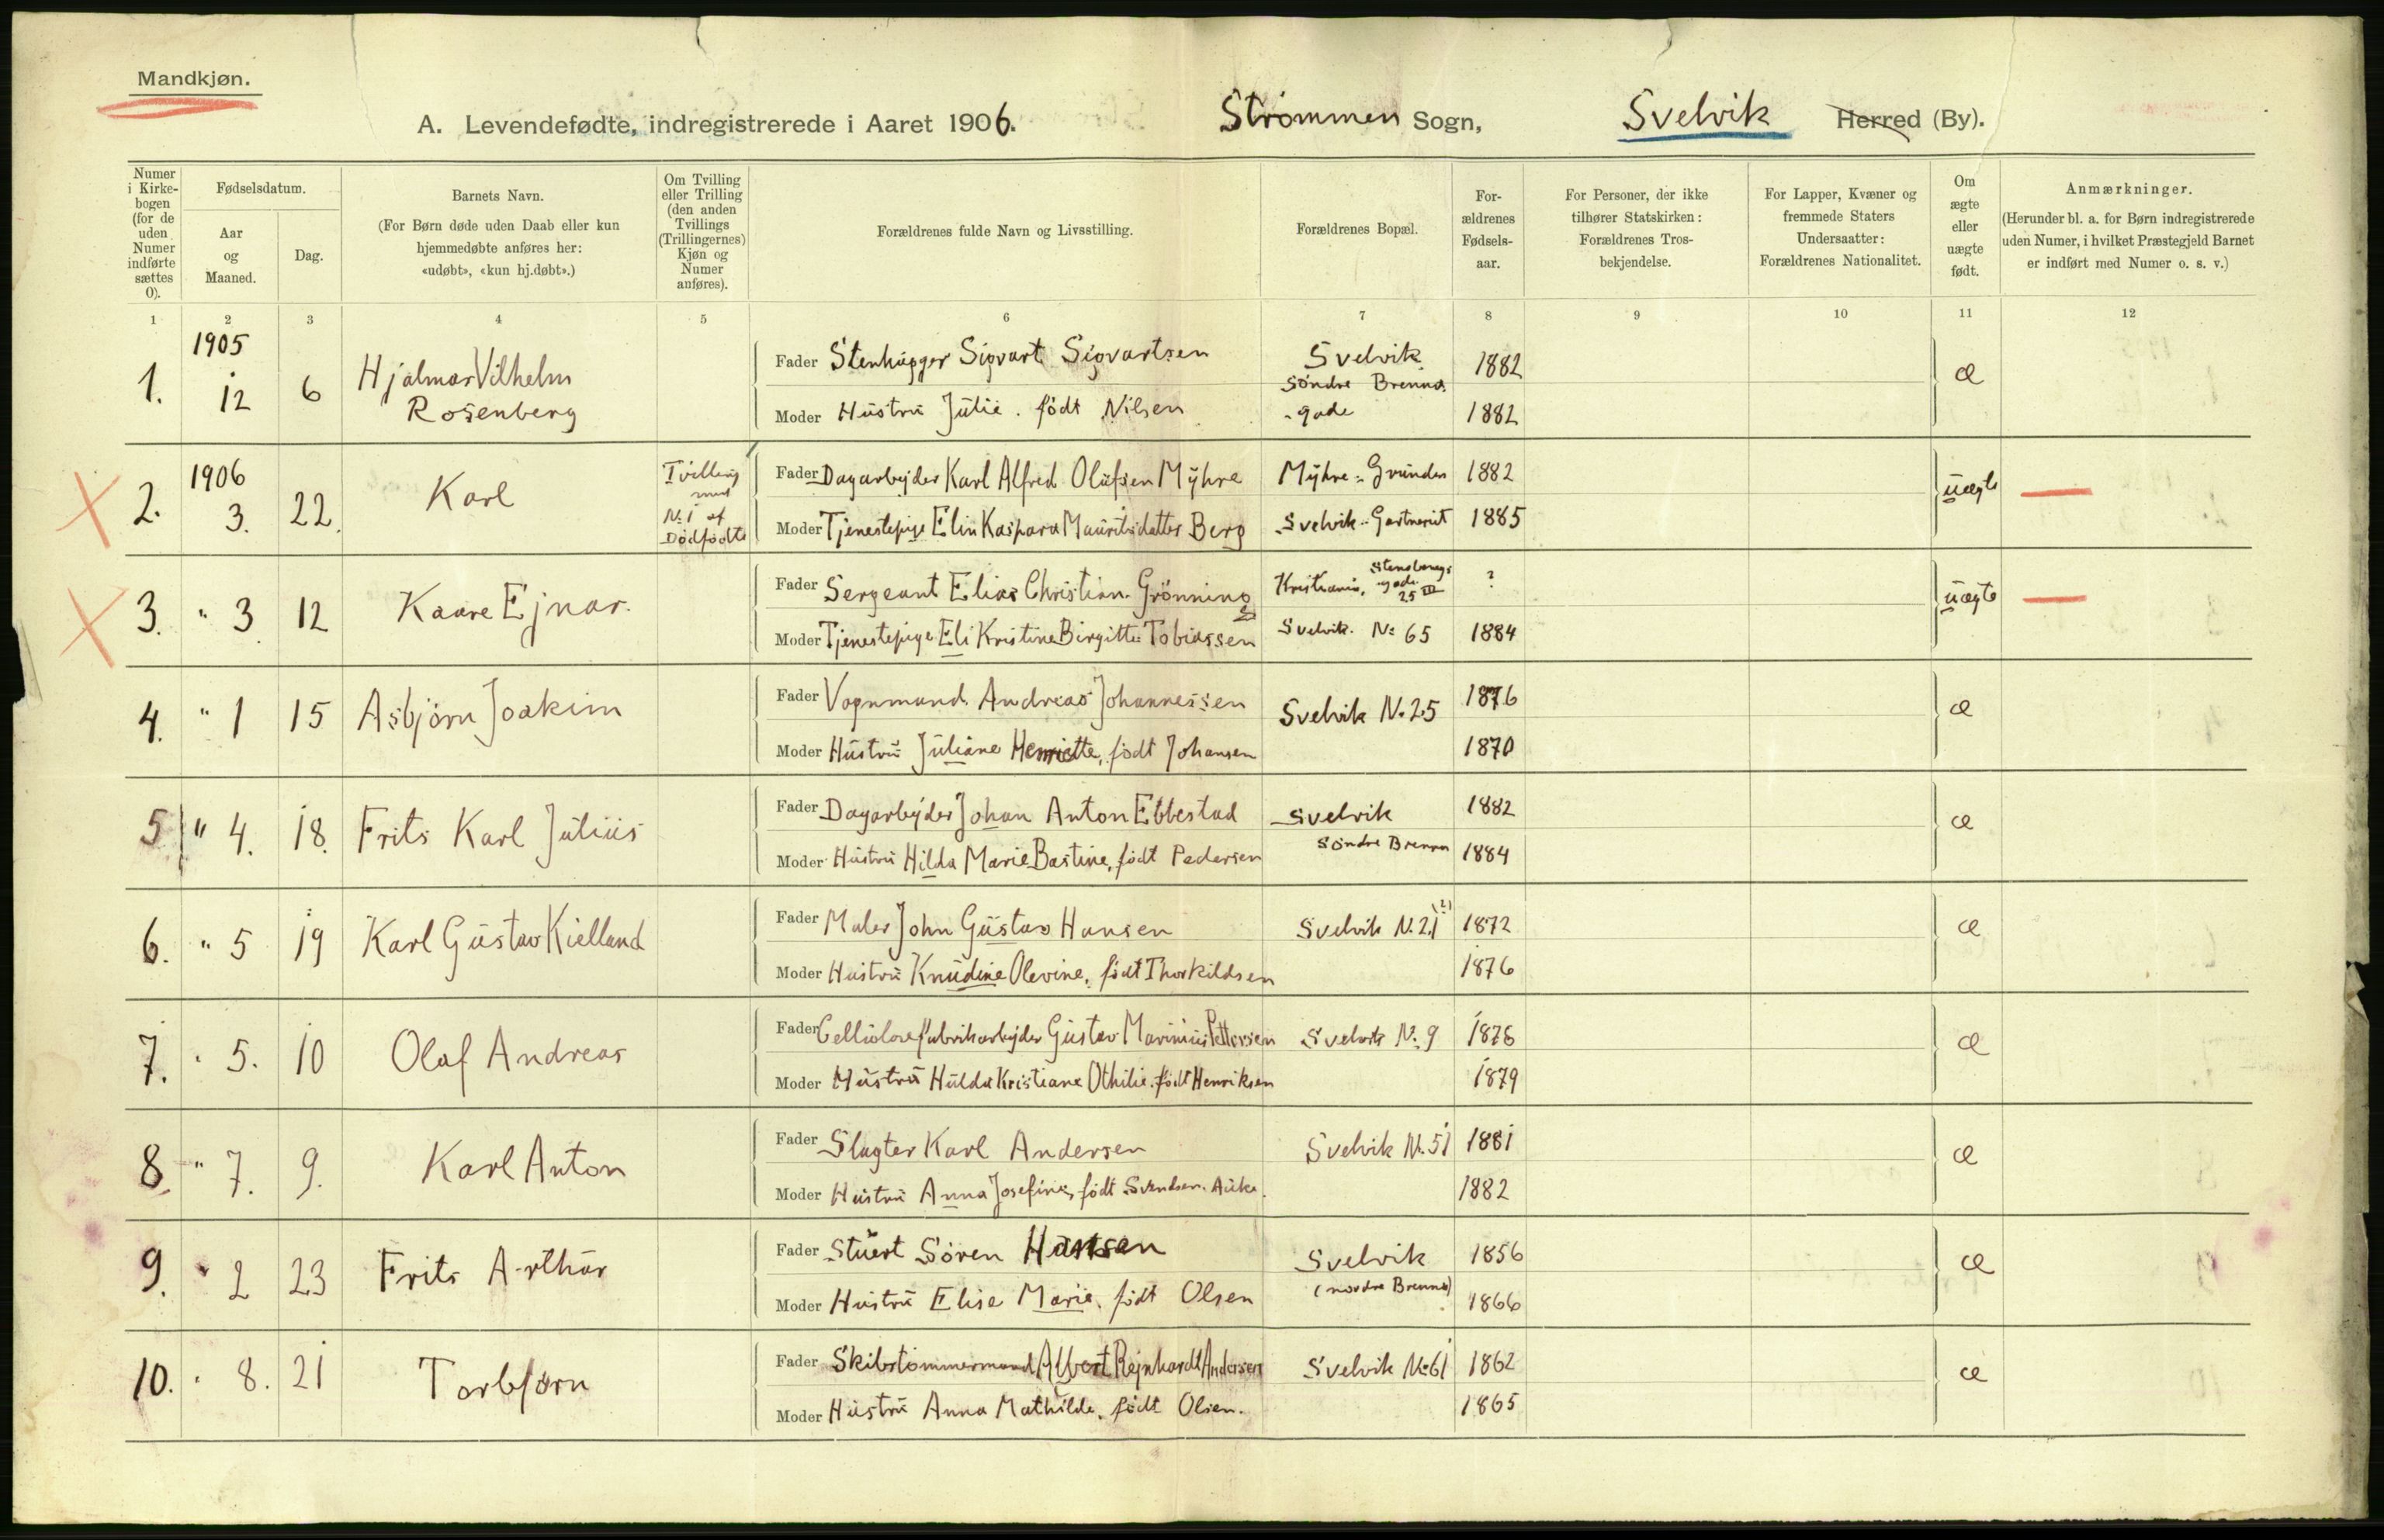 Mandkjøn.
A. Levendefødte, indregistrerede i Aaret 1906. Strømmen Sogn, Svelvik Herred (By).
Numer i Kirkebogen (for de uden Numer indførte sættes 0).
Fødselsdatum.
Aar og Maaned.
Dag.
Barnets Navn.
(For Børn døde uden Daab eller kun hjemmedøbte anføres her: «udøbt», «kun hj.døbt».)
Om Tvilling eller Trilling (den anden Tvillings (Trillingernes) Kjøn og Numer anføres).
Forældrenes fulde Navn og Livsstilling.
Forældrenes Bopæl.
Forældrenes Fødselsaar.
For Personer, der ikke tilhører Statskirken: Forældrenes Trosbekjendelse.
For Lapper, Kvæner og fremmede Staters Undersaatter: Forældrenes Nationalitet.
Om ægte eller uægte født.
Anmærkninger.
(Herunder bl. a. for Børn indregistrerede uden Numer, i hvilket Præstegjeld Barnet er indført med Numer o. s. v.)
1 2 3 4 5 6 7 8 9 10 11 12
1905
1. 12 6 Hjalmar Vilhelm Rosenberg
Fader Stenhugger Sigvart Sigvartsen Svelvik 1882 æ
Søndre Brenna-gade
Moder Hustru Julie. født Nilsen 1882
1906
2. 3. 22. Karl Tvilling med No 1 af Dødfødte
Fader Dagarbejder Karl Alfred Olufsen Myhre Myhre-Grunden 1882 uægte
Moder Tjenestepige Elin Kaspara Mauritsdatter Berg Svelvik-Gartneriet 1885
3. " 3 12 Kaare Ejnar.
Fader Sergeant Elias Christian Grønning Kristiania, Stensbergsgade 25 III ? uægte
Moder Tjenestepige Eli Kristine Birgitte Tobiassen Svelvik. No 65 1884
4. " 1 15 Asbjørn Joakim
Fader Vognmand Andreas Johannessen Svelvik No. 25 1876 æ
Moder Hustru Juliane Henriette, født Johansen 1870
5 " 4. 18. Frits Karl Julius
Fader Dagarbejder Johan Anton Ebbestad Svelvik 1882 æ
Søndre Brenna
Moder Hustru Hilda Marie Bastine, født Pedersen 1884
6. " 5 19 Karl Gustav Kielland
Fader Maler John Gustav Hansen Svelvik No. 21 (?) 1872 æ
Moder Hustru Knudine Olevine, født Thorkildsen 1876
7. " 5. 10 Olaf Andreas
Fader Cellulosefabrikarbejder Gustav Marinius Pettersen Svelvik No. 9 1876 æ
Moder Hustru Hulda Kristiane Othilie. født Henriksen 1879
8. " 7. 9. Karl Anton
Fader Slagter Karl Andersen Svelvik No. 51 1881 æ
Moder Hustru Anna Josefine, født Svendsen. Auke. 1882
9. " 2 23 Frits Arthur
Fader Stuert Søren Hansen Svelvik 1856 æ
(nordre Brenna)
Moder Hustru Elise Marie. født Olsen 1866
10. " 8. 21 Torbjørn
Fader Skibstømmermand Albert Rejnhardt Andersen Svelvik No 61 1862 æ
Moder Hustru Anna Mathilde. født Olsen. 1865